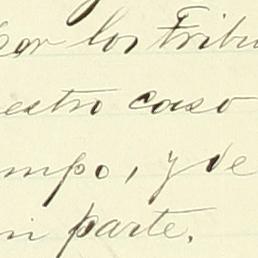 por los Tribu
estro caso
mpo, y de
mi parte.